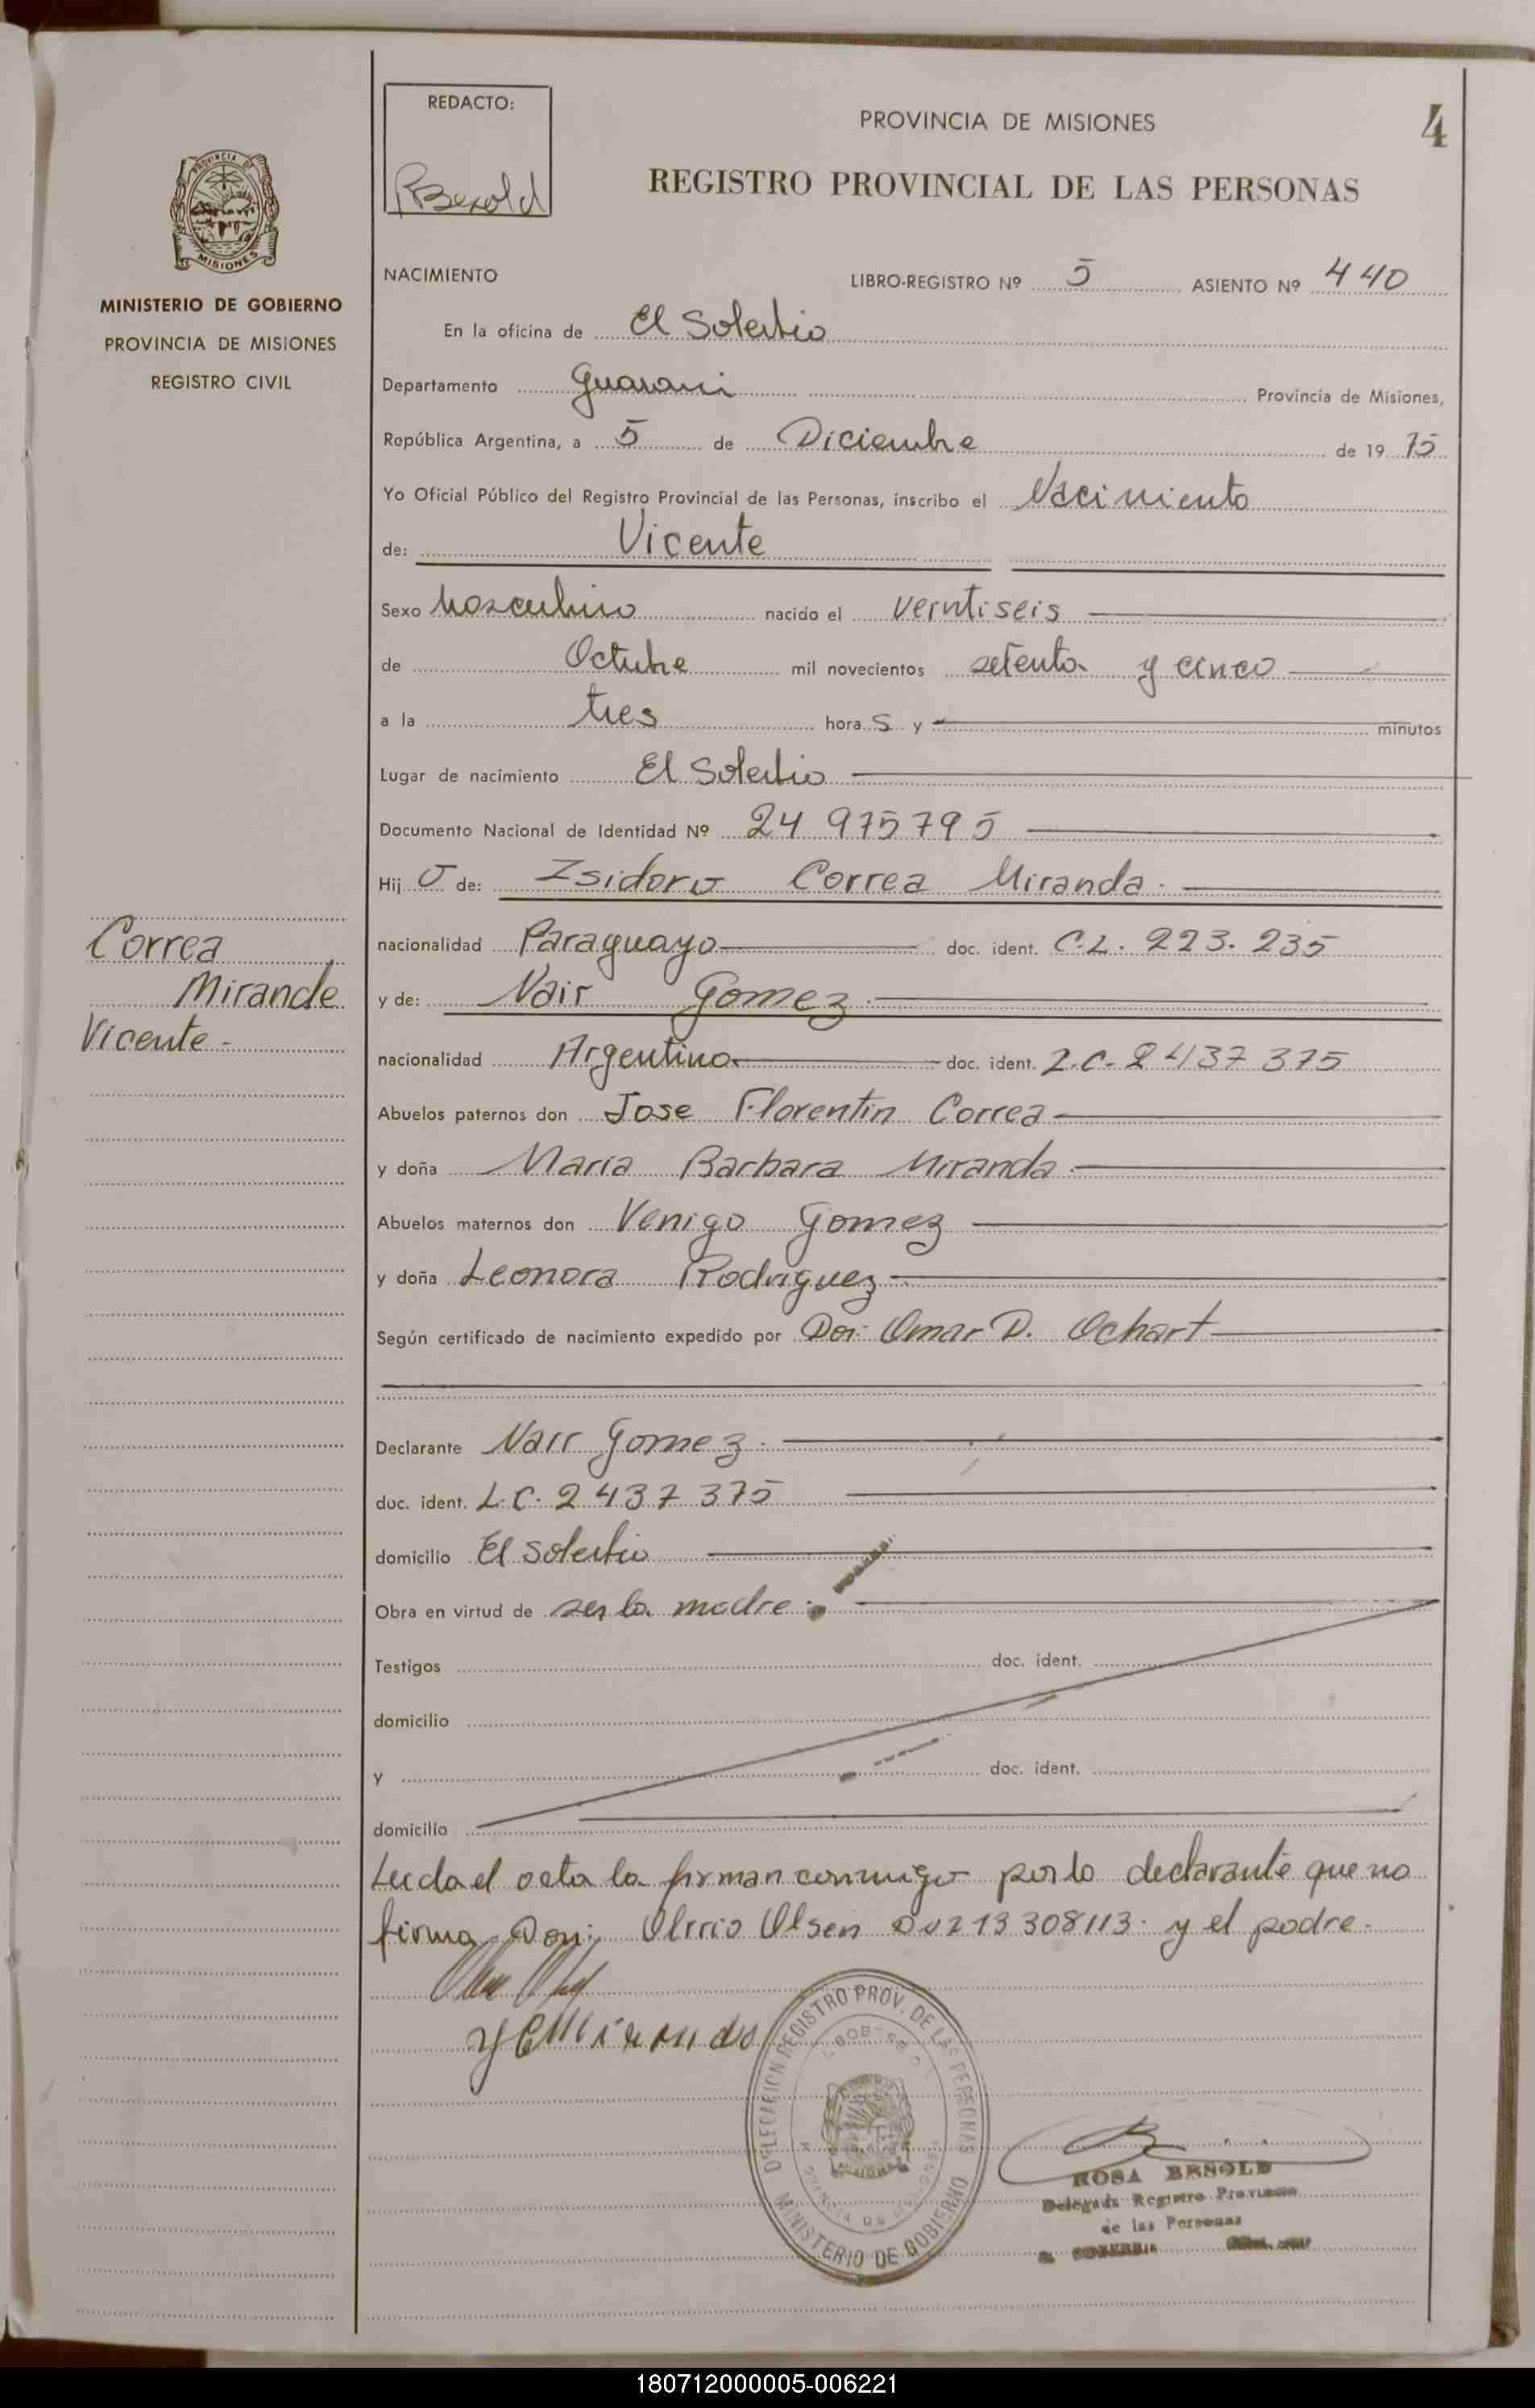 REDACTO:
RBenold
PROVINCIA DE MISIONES
4
REGISTRO PROVINCIAL DE LAS PERSONAS
PROVINCIA DE
MISIONES
MINISTERIO DE GOBIERNO
PROVINCIA DE MISIONES
REGISTRO CIVIL
NACIMIENTO
LIBRO-REGISTRO Nº 5 ASIENTO Nº 440
En la oficina de El Soberbio
Departamento Guarani Provincia de Misiones,
República Argentina, a 5 de Diciembre de 1975
Yo Oficial Público del Registro Provincial de las Personas, inscribo el Nacimiento
de: Vicente
Sexo Masculino nacido el veintiseis
de Octubre mil novecientos setenta y cinco
a la tres hora s y minutos
Lugar de nacimiento El Soberbio
Documento Nacional de Identidad Nº 24 975795
Hij o de: Isidoro Correa Miranda.
Correa
Miranda
Vicente -
nacionalidad Paraguayo doc. ident. C.I. 223.235
y de: Nair Gomez.
nacionalidad Argentina doc. ident. L.C. 2437 375
Abuelos paternos don Jose Florentin Correa
y doña Maria Barbara Miranda.
Abuelos maternos don Venigo Gomez
y doña Leonora Rodriguez
Según certificado de nacimiento expedido por Omar D. Ochart
Declarante Nair Gomez.
doc. ident. L.C. 2 437 375
domicilio El Soberbio
Obra en virtud de ser la madre.
Testigos doc. ident.
domicilio
y doc. ident.
domicilio
Leida el acta la firman conmigo por la declarante que no
firma Don: Olsen 13308113. y el padre.
DELEGACION REGISTRO PROV. DE LAS PERSONAS
MINISTERIO DE GOBIERNO
ROSA BENOLD
Delegada Registro Provincial
de las Personas
180712000005-006221